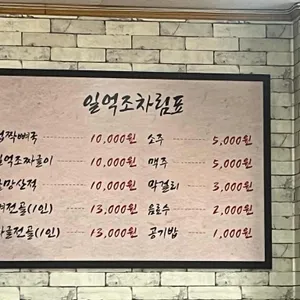 일억조차림표
뼈국 10,000원 소주 5,000원
일억조짜글이 10,000원 맥주 5,000원
10,000원 막걸리 3,000원
전골(1인) 13,000원 음료수 2,000원
전골(1인) 13,000원 공기밥 1,000원